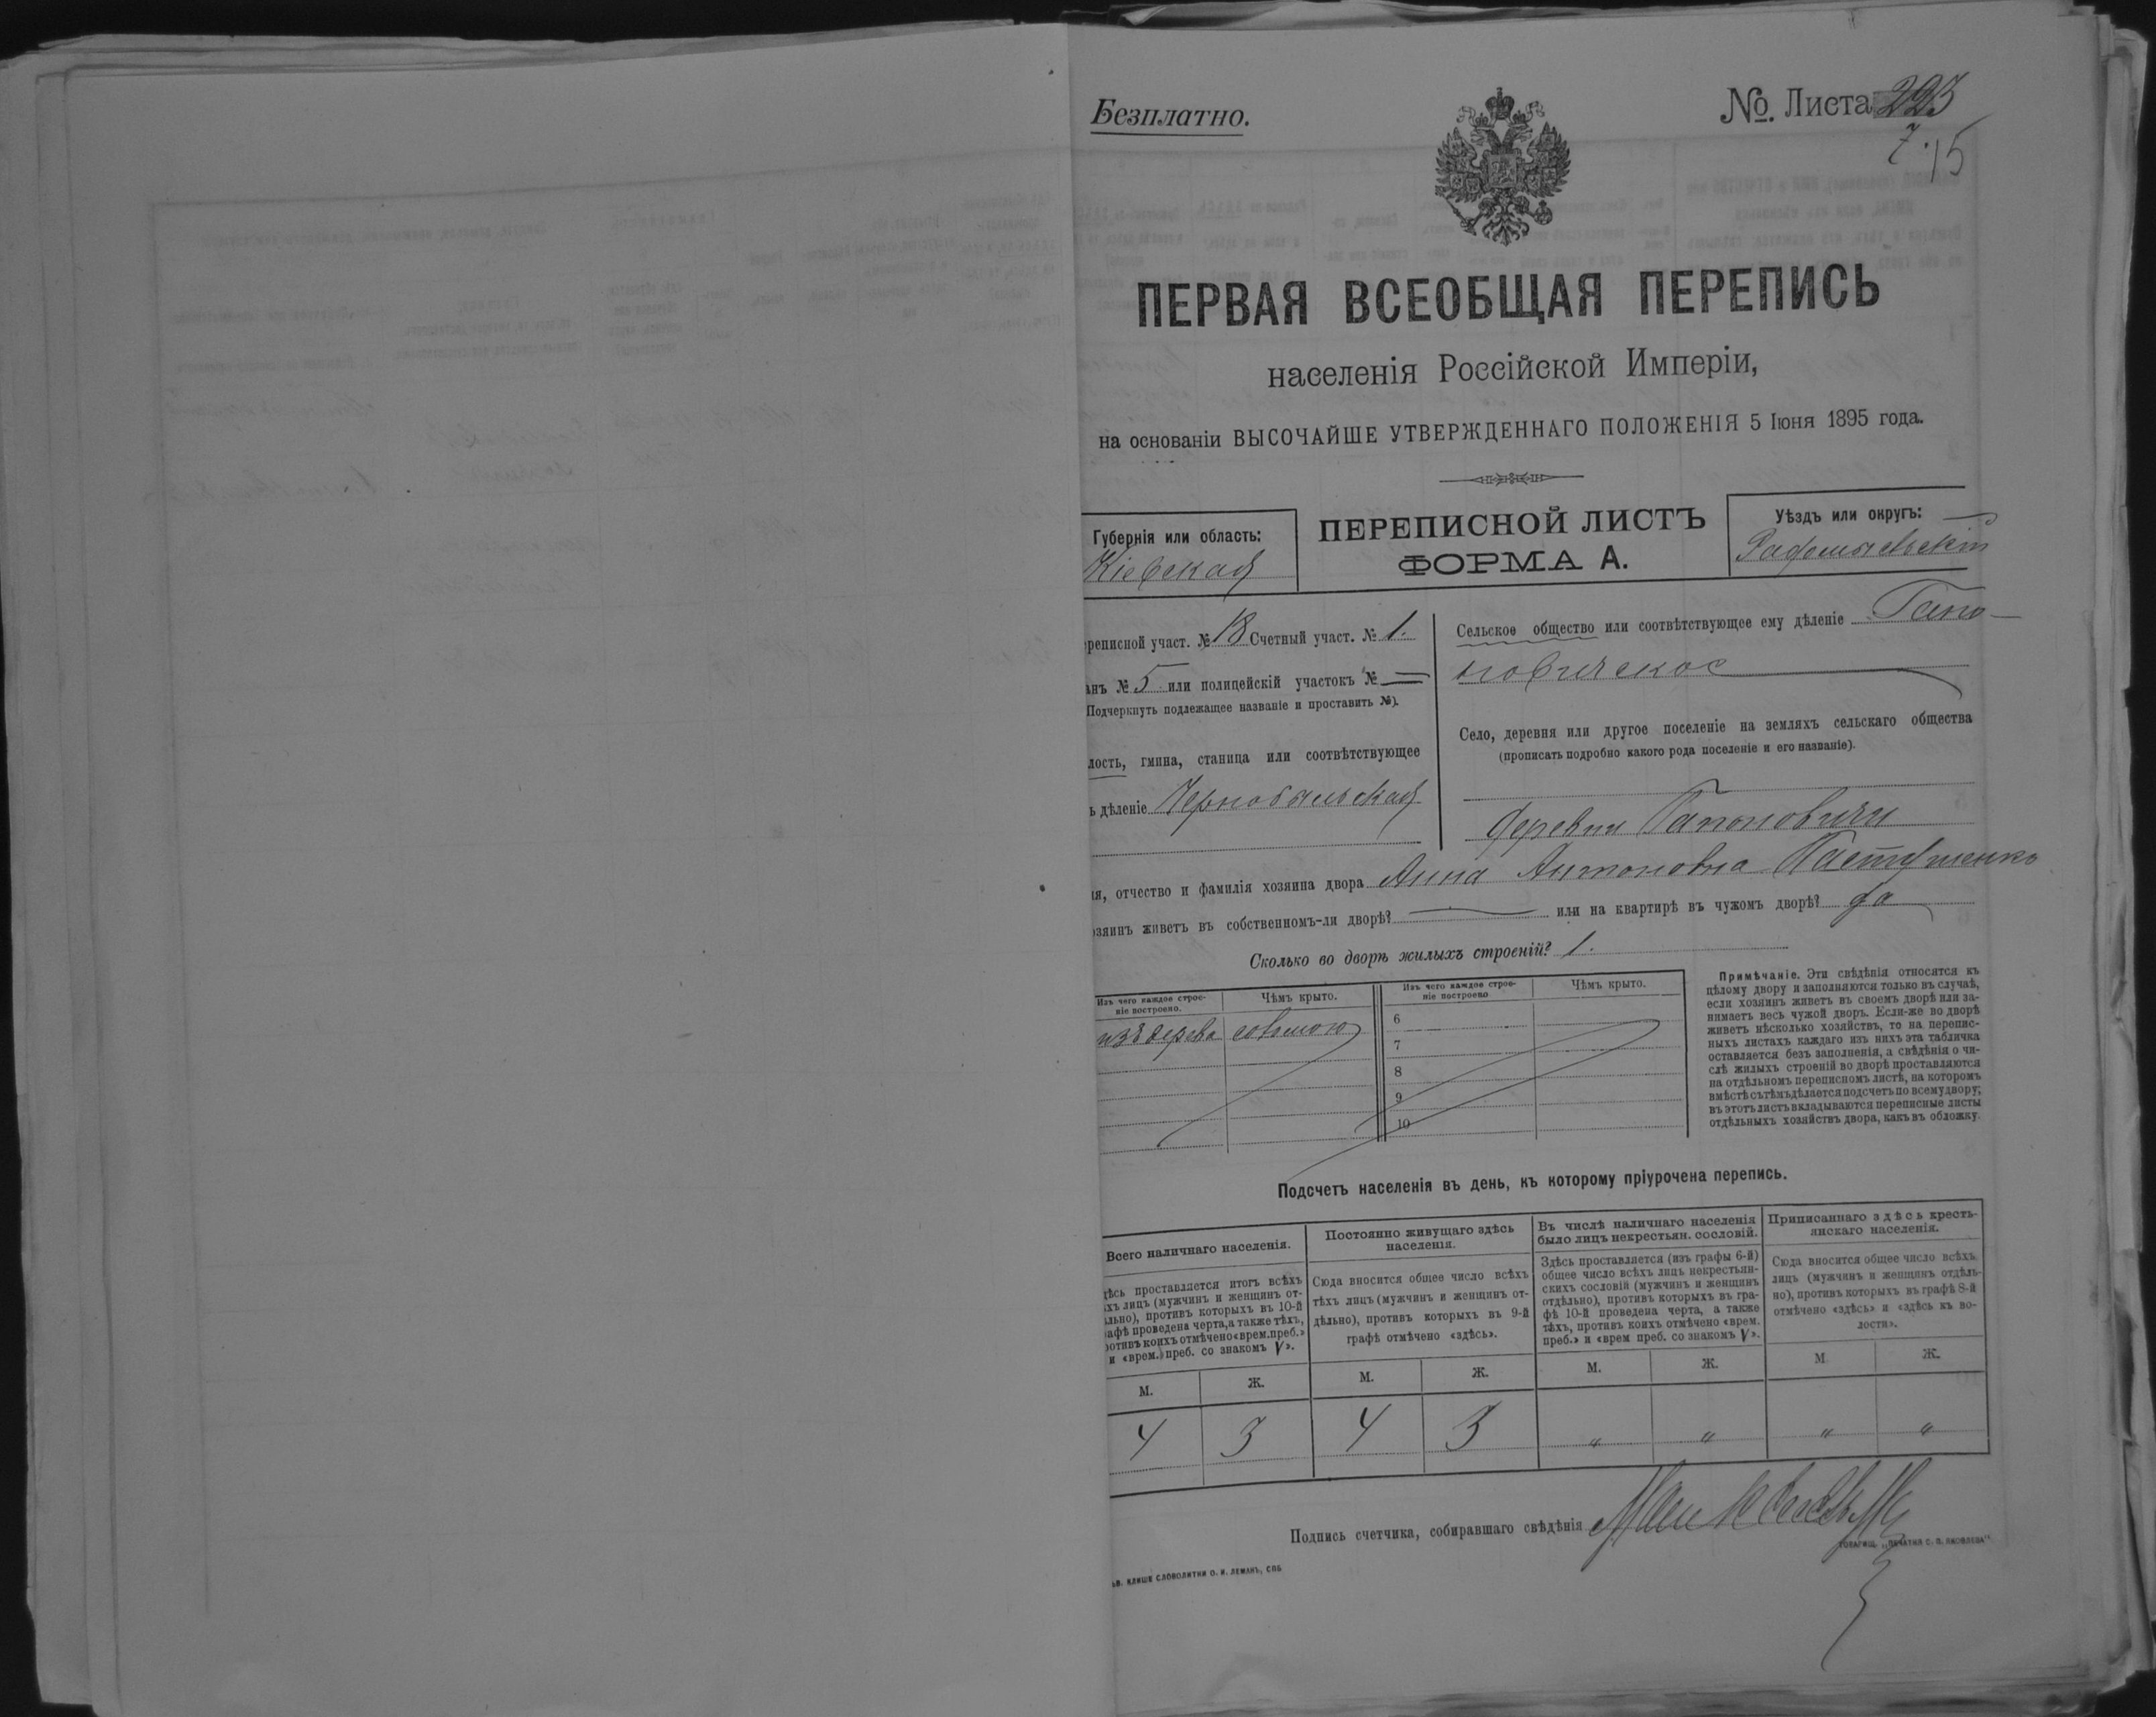 Безплатно.
№. Листа 223
7.15
ПЕРВАЯ ВСЕОБЩАЯ ПЕРЕПИСЬ
населенія Россійской Имперіи,
на основаніи ВЫСОЧАЙШЕ УТВЕРЖДЕННАГО ПОЛОЖЕНІЯ 5 Іюня 1895 года.
Губернія или область:
Кіевская
ПЕРЕПИСНОЙ ЛИСТЪ
ФОРМА А.
Уѣздъ или округъ:
Радомысльскій
реписной участ. № 18 Счетный участ. № 1.
анъ № 5 или полицейскій участокъ № —
Подчеркнуть подлежащее названіе и проставить №).
лость, гмина, станица или соотвѣтствующее
ь дѣленіе Чернобыльская
Сельское общество или соотвѣтствующее ему дѣленіе Гапо-
новичское
Село, деревня или другое поселеніе на земляхъ сельскаго общества
(прописать подробно какого рода поселеніе и его названіе).
деревня Гапоновичи
я, отчество и фамилія хозяина двора Анна Антоновна
озяинъ живетъ въ собственномъ-ли дворѣ? — или на квартирѣ въ чужомъ дворѣ? да
Сколько во дворѣ жилыхъ строеній? 1.
Изъ чего каждое строе-
ніе построено.
Чѣмъ крыто.
Изъ чего каждое строе-
ніе построено
Чѣмъ крыто.
изъ дерева соломою
6
7
8
9
10
Примѣчаніе. Эти свѣдѣнія относятся къ
цѣлому двору и заполняются только въ случаѣ,
если хозяинъ живетъ въ своемъ дворѣ или за-
нимаетъ весь чужой дворъ. Если-же во дворѣ
живетъ нѣсколько хозяйствъ, то на перепис-
ныхъ листахъ каждаго изъ нихъ эта табличка
оставляется безъ заполненія, а свѣдѣнія о чи-
слѣ жилыхъ строеній во дворѣ проставляются
на отдѣльномъ переписномъ листѣ, на которомъ
вмѣстѣ съ тѣмъ дѣлается подсчетъ по всему двору;
въ этотъ листъ вкладываются переписные листы
отдѣльныхъ хозяйствъ двора, какъ въ обложку.
Подсчетъ населенія въ день, къ которому пріурочена перепись.
Всего наличнаго населенія.
дѣсь проставляется итогъ всѣхъ
хъ лицъ (мужчинъ и женщинъ от-
льно), противъ которыхъ въ 10-й
афѣ проведена черта, а также тѣхъ,
отивъ коихъ отмѣчено «врем. преб.»
и «врем. преб. со знакомъ V».
Постоянно живущаго здѣсь
населенія.
Сюда вносится общее число всѣхъ
тѣхъ лицъ (мужчинъ и женщинъ от-
дѣльно), противъ которыхъ въ 9-й
графѣ отмѣчено «здѣсь».
Въ числѣ наличнаго населенія
было лицъ некрестьян. сословій.
Здѣсь проставляется (изъ графы 6-й)
общее число всѣхъ лицъ некрестьян-
скихъ сословій (мужчинъ и женщинъ
отдѣльно), противъ которыхъ въ гра-
фѣ 10-й проведена черта, а также
тѣхъ, противъ коихъ отмѣчено «врем.
преб.» и «врем преб. со знакомъ V».
Приписаннаго здѣсь кресть-
янскаго населенія.
Сюда вносится общее число всѣхъ
лицъ (мужчинъ и женщинъ отдѣль-
но), противъ которыхъ въ графѣ 8-й
отмѣчено «здѣсь» и «здѣсь къ во-
лости».
М. Ж. М. Ж. М. Ж. М. Ж.
4 3 4 3 " " " "
Подпись счетчика, собиравшаго свѣдѣнія
ТОВАРИЩ. „ПЕЧАТНЯ С. П. ЯКОВЛЕВА“.
ЬВ. КЛИШЕ СЛОВОЛИТНИ О. И. ЛЕМАНЪ, СПБ